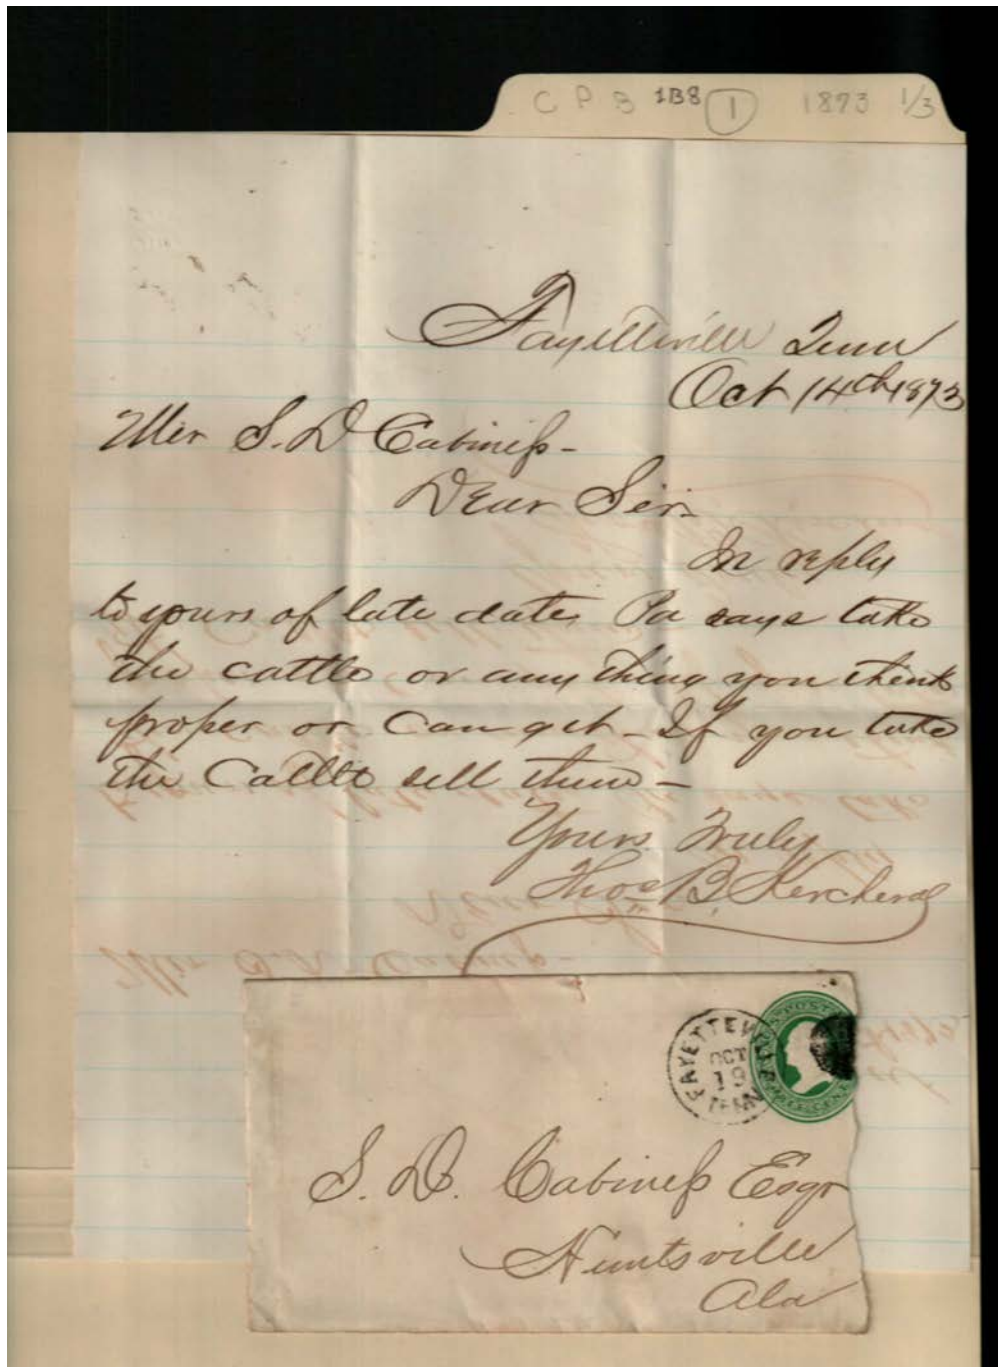 C P B 1B8 1 1873 1/3
Fayetteville Tenn
Oct 14th 1873
Mr S. D Cabiness -
Dear Sir.
In reply
to yours of late date, Pa says take
the cattle or any thing you think
proper or can get - If you take
the Cattle sell them -
Yours Truly
Thos B. Kercheval
FAYETTEVILLE
OCT
TENN
S. D. Cabiness Esqr
Huntsville
Ala